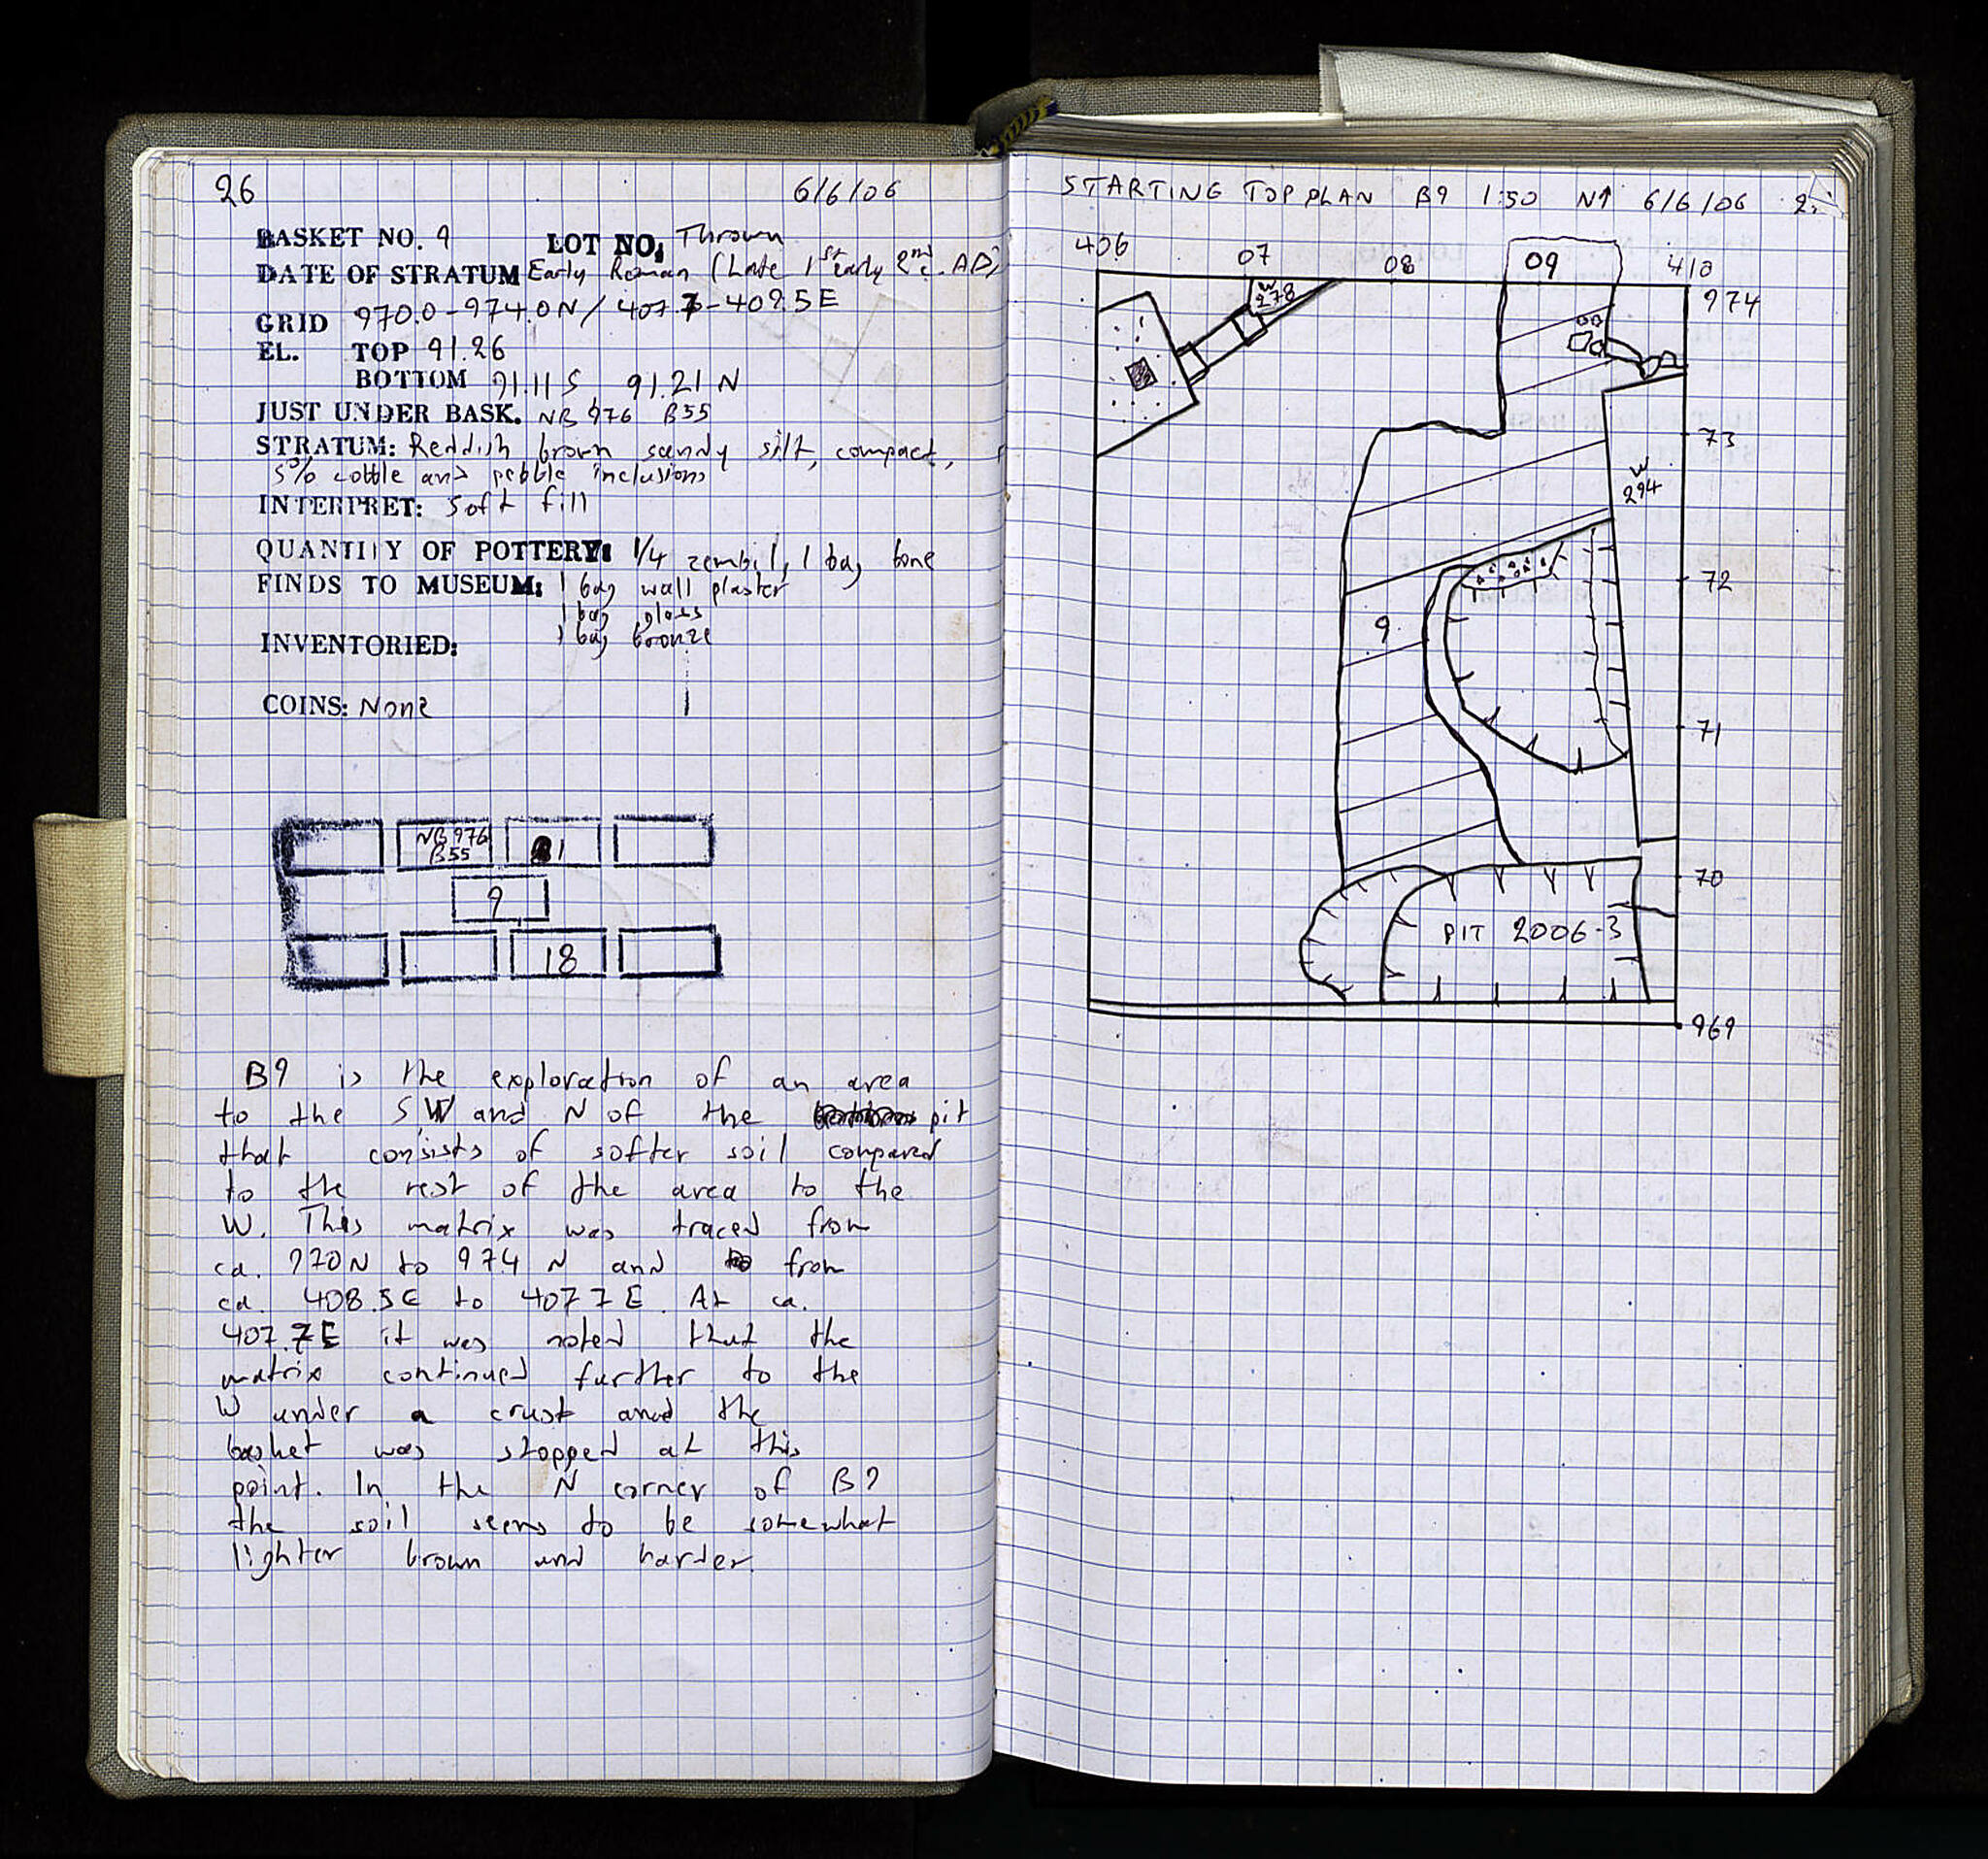 26 6/6/06
BASKET NO. 9 LOT NO. Thrown
DATE OF STRATUM Early Roman (Late 1st early 2nd c. AD)
GRID 970.0-974.0N / 407.7-409.5E
EL. TOP 91.26
BOTTOM 91.11 S 91.21 N
JUST UNDER BASK. NB 976 B55
STRATUM: Reddish brown sandy silt, compact,
5% cobble and pebble inclusions
INTERPRET: Soft fill
QUANTITY OF POTTERY: 1/4 zembil, 1 bag bone
FINDS TO MUSEUM: 1 bag wall plaster
1 bag glass
1 bag bronze
INVENTORIED:
COINS: None
NB 976
B55
9
18
B9 is the exploration of an area
to the S, W and N of the pit
that consists of softer soil compared
to the rest of the area to the
W. This matrix was traced from
ca. 970N to 974 N and from
ca. 408.5E to 407.7E. At ca.
407.7E it was noted that the
matrix continued further to the
W under a crust and the
basket was stopped at this
point. In the N corner of B9
the soil seems to be somewhat
lighter brown and harder.
STARTING TOP PLAN B9 1:50 N↑ 6/6/06
406 07 08 09 410
W
278
974
73
W
294
72
9
71
70
PIT 2006-3
969